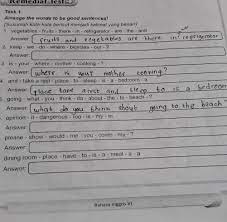 Remedial Test
Task 1
Arrange the words to be good sentences!
(Susunlah kata-kata berikut menjadi kalimat yang benar!)
1. vegetables - fruits - there - in - refrigerator - are - the - and
Answer: fruits and vegetables are there in refrigerator
2. keep - we - do - where - besides - our - ?
Answer:
3. is - your - where - mother - cooking - ?
Answer: where is your mother cooking?
4. and - take a rest - place - to - sleep - is - a - bedroom - a
Answer: place take a rest and sleep to is a bedroom
5. going - what - you - think - do - about - the - to - beach - ?
Answer: what do you think about going to the beach
opinion - it - dangerous - too - is - my - in
Answer:
please - show - would - me - you - room - my - ?
Answer:
dining room - place - have - to - is - a - meal - a - a
Answer:
Bahasa Inggris VI